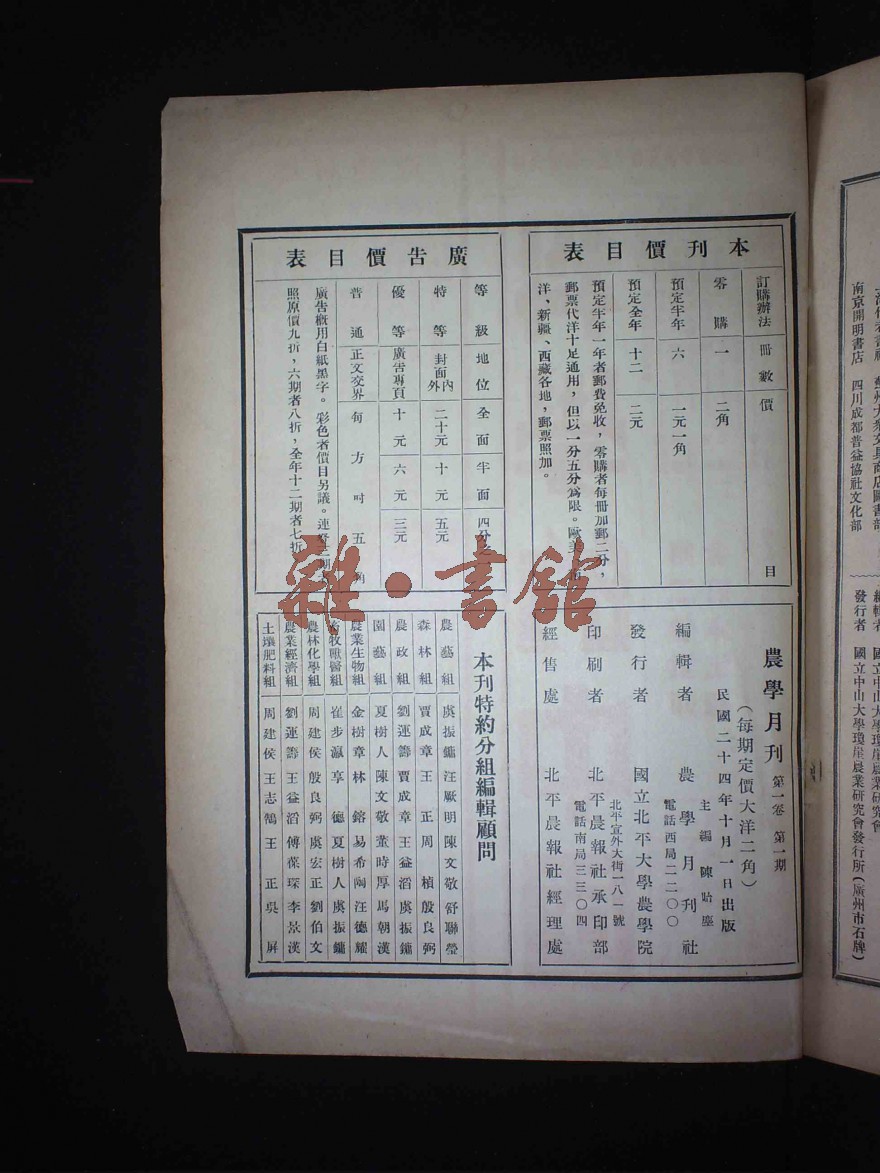 本刊價目表
訂購辦法 冊數 價目
零購 一 二角
預定半年 六 一元一角
預定全年 十二 二元
預定半年一年者郵費免收，零購者每冊加郵二分，
郵票代洋十足通用，但以一分五分為限。歐美
洋、新疆、西藏各地，郵票照加。
廣告價目表
等級 地位 全面 半面 四分之
特等 封面內外 二十元 十元 五元
優等 廣告專頁 十元 六元 三元
普通 正文交界 每方吋五角
廣告概用白紙墨字。彩色者價目另議。連登三期
照原價九折，六期者八折，全年十二期者七折
農學月刊 第一卷 第一期
（每期定價大洋二角）
民國二十四年十月一日出版
主編 陳貽塵
編輯者 農學月刊社
電話西局二二〇〇
發行者 國立北平大學農學院
北平宣外大街一八一號
印刷者 北平晨報社承印部
電話南局三三〇四
經售處 北平晨報社經理處
本刊特約分組編輯顧問
農藝組 虞振鏞 汪厥明 陳文敬 舒聯瑩
森林組 賈成章 王正 周楨 殷良弼
農政組 劉運籌 賈成章 王益滔 虞振鏞
園藝組 夏樹人 陳文敬 董時厚 馬朝漢
農業生物組 金樹章 林鎔 易希陶 汪德耀
畜牧獸醫組 崔步瀛 享德 夏樹人 虞振鏞
農林化學組 周建侯 殷良弼 虞宏正 劉伯文
農業經濟組 劉運籌 王益滔 傅葆琛 李景漢
土壤肥料組 周建侯 王志鵠 王正 吳屏
雜·書館
南京開明書店 四川成都普益協社文化部
編輯者 國立中山大學瓊崖農業研究會
發行者 國立中山大學瓊崖農業研究會發行所（廣州市石牌）